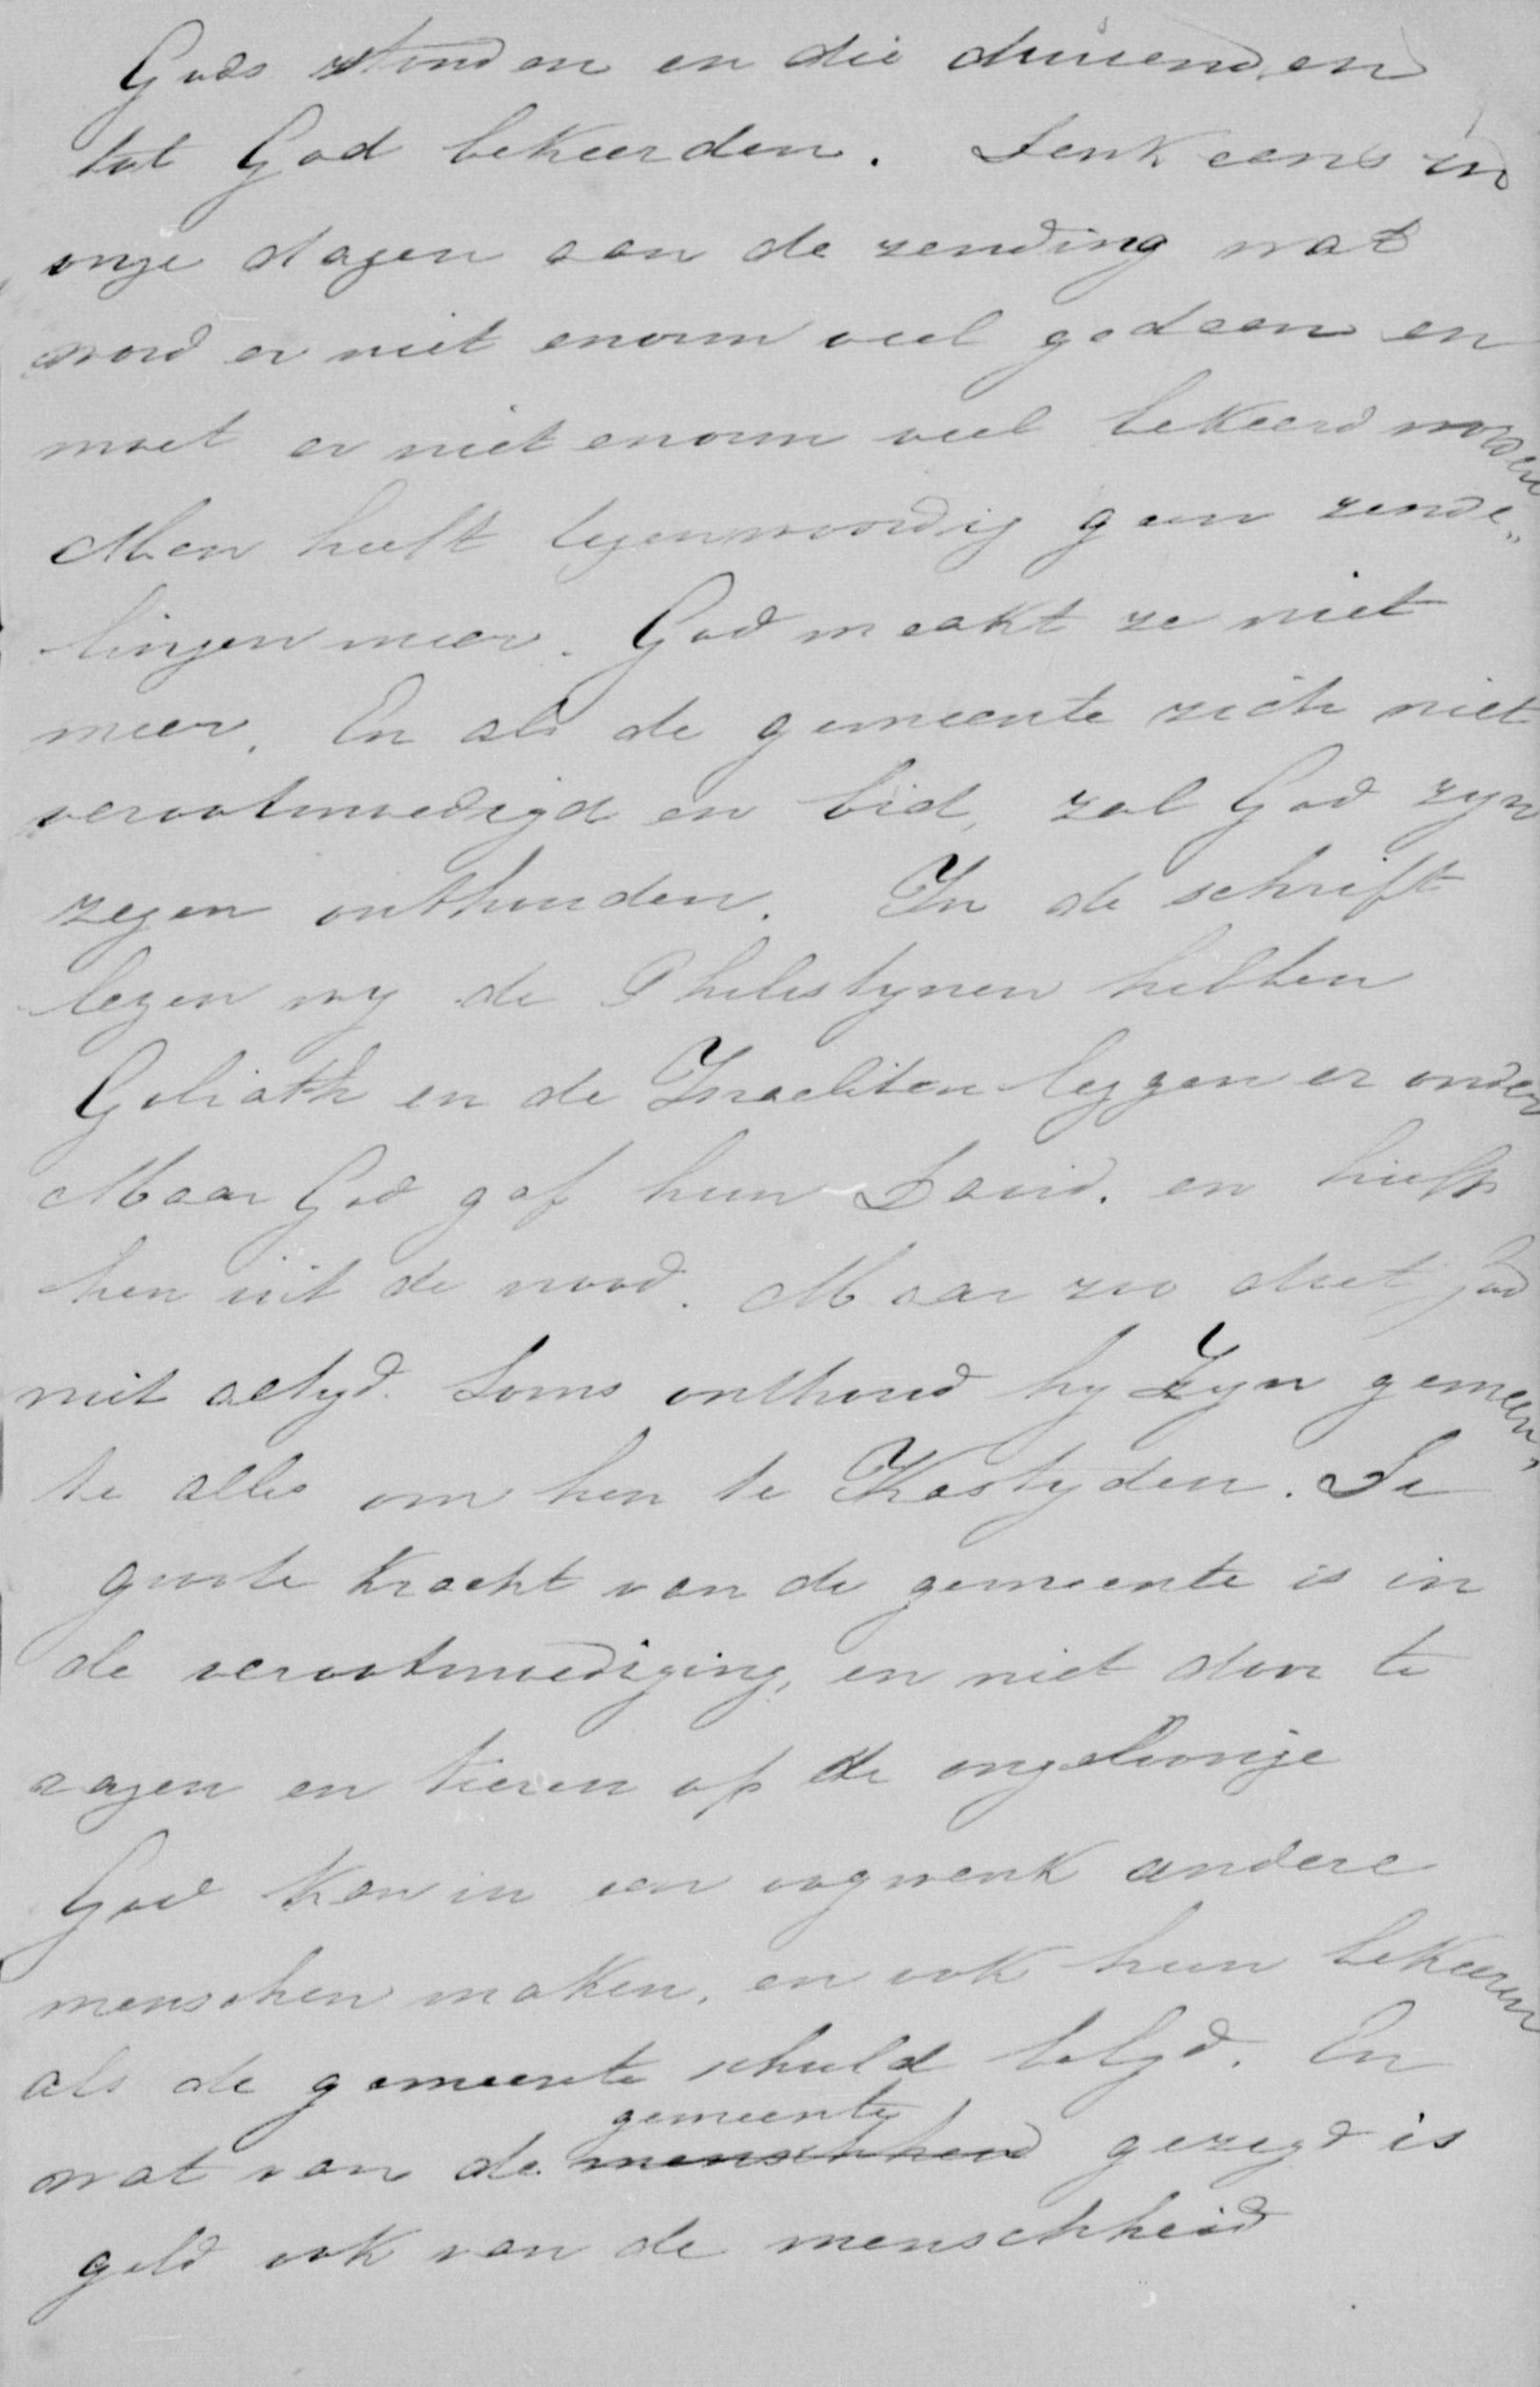 Gods stonden en die duizenden
tot God bekeerden. Denk eens in
onze dagen aan de zending wat
word er niet enorm veel gedaan en
moet er niet enorm veel bekeerd worden
Men heeft tegenwoordig geen zende„
lingen meer. God maakt ze niet
meer. En als de gemeente zich niet
verootmoedigd en bid, zal God zyn
zegen onthouden. In de schrift
lezen wy de Philistynen hebben
Goliath en de Israeliten leggen er onder
Maar God gaf hun David. en hielp
hen uit de nood. Maar zoo doet God
niet altyd. Soms onthoud hy Zyn gemeen„
te alles om hen te Kastyden. De
groote kracht van de gemeente is in
de verootmoediging, en niet door te
razen en tieren op de ongelovige
God kan in een oogwenk andere
menschen maken, en ook hun bekeeren
als de gemeente schuld belyd. En
gemeente
wat van de menschheid gezegd is
geld ook van de menschheid